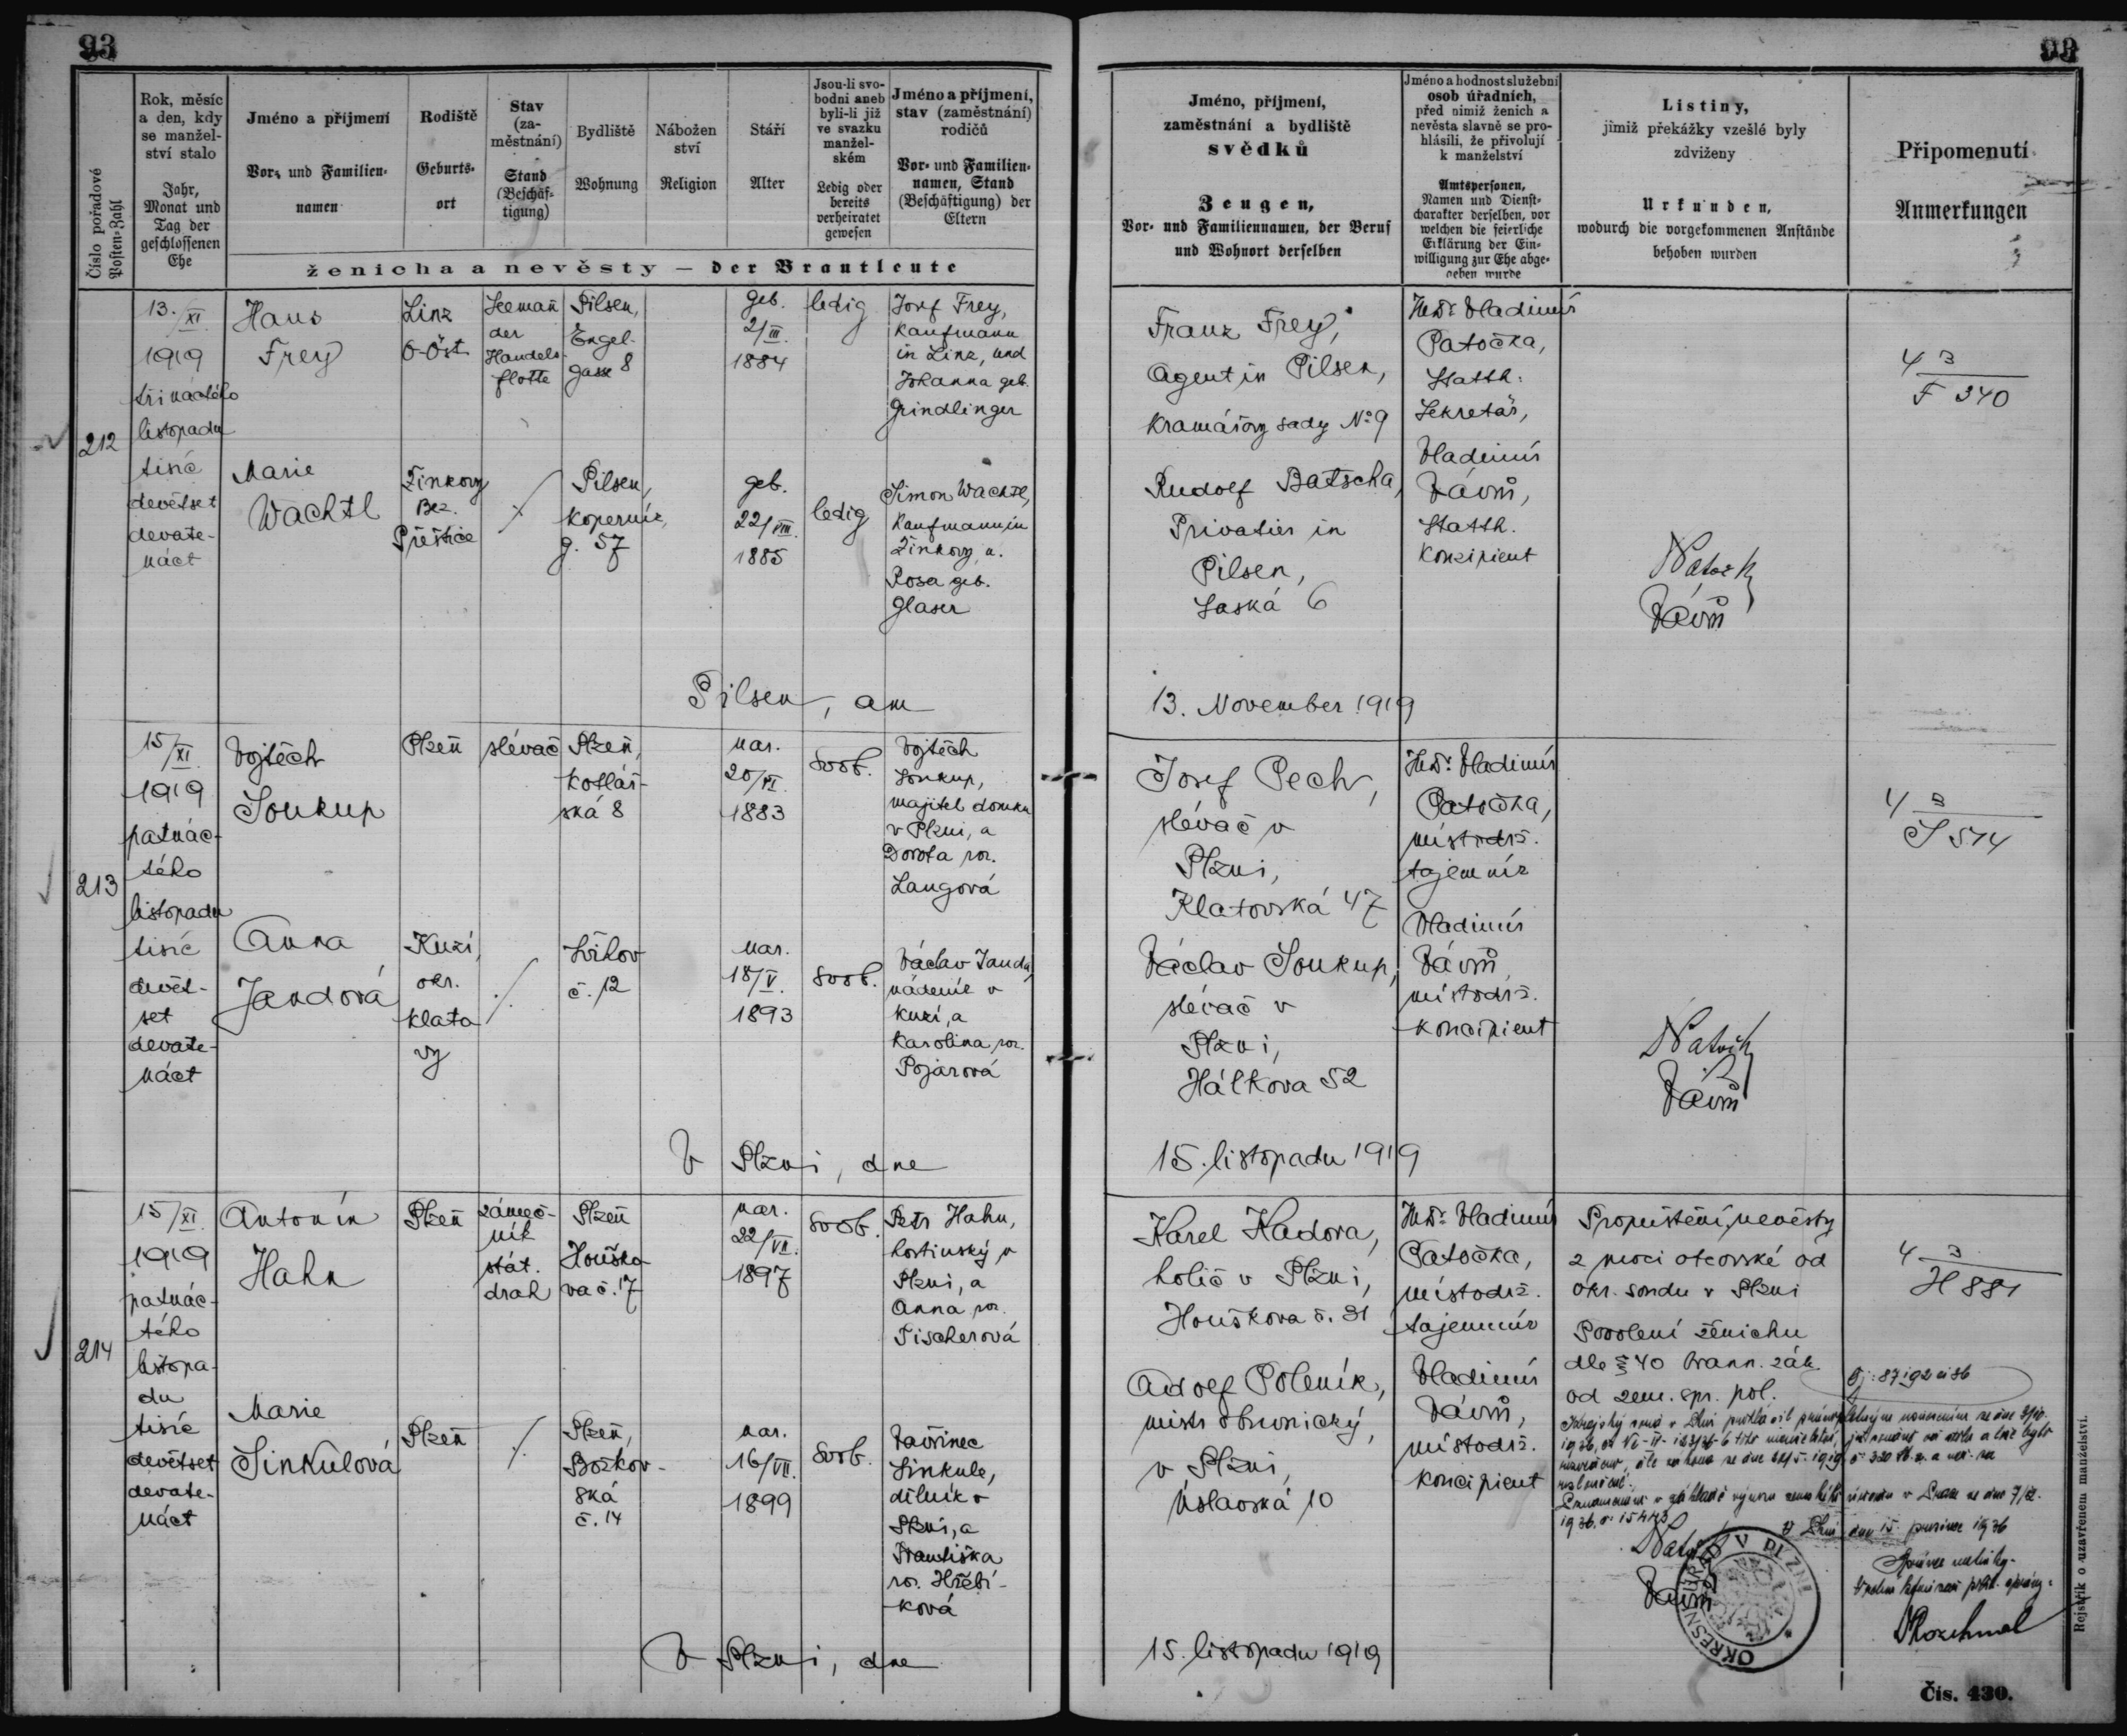 93
93
Číslo pořadové
Posten-Zahl
Rok, měsíc
a den, kdy
se manžel-
ství stalo
Jahr,
Monat und
Tag der
geschlossenen
Ehe
Jméno a příjmení
Vor- und Familien-
namen
Rodiště
Geburts-
ort
Stav
(za-
městnání)
Stand
(Beschäf-
tigung)
Bydliště
Wohnung
Nábožen
ství
Religion
Stáří
Alter
Jsou-li svo-
bodni aneb
byli-li již
ve svazku
manžel-
ském
Ledig oder
bereits
verheiratet
gewesen
Jméno a příjmení,
stav (zaměstnání)
rodičů
Vor- und Familien-
namen, Stand
(Beschäftigung) der
Eltern
ženicha a nevěsty — der Brautleute
Jméno, příjmení,
zaměstnání a bydliště
svědků
Zeugen,
Vor- und Familiennamen, der Beruf
und Wohnort derselben
Jméno a hodnost služební
osob úřadních,
před nimiž ženich a
nevěsta slavně se pro-
hlásili, že přivolují
k manželství
Amtspersonen,
Namen und Dienst-
charakter derselben, vor
welchen die feierliche
Erklärung der Ein-
willigung zur Ehe abge-
geben wurde
Listiny,
jimiž překážky vzešlé byly
zdviženy
Urkunden,
wodurch die vorgekommenen Anstände
behoben wurden
Připomenutí
Anmerkungen
212
13./XI.
1919
třináctého
listopadu
tisíc
devětset
devate-
náct
Hans
Frey
Linz
O-Öst.
Seemañ
der
Handels-
flotte
Pilsen,
Engel-
gasse 8
geb.
2/III.
1884
ledig
Josef Frey,
Kaufmann
in Linz, und
Johanna geb.
Grindlinger
Marie
Wachtl
Žinkovy
Bez.
Přeštice
Pilsen,
Koperník
g. 57
geb.
22/VIII.
1885
ledig
Simon Wachtl,
Kaufmann in
Žinkovy, u.
Rosa geb.
Glaser
Franz Frey,
Agent in Pilsen,
Kramářovy sady No 9
Rudolf Batscha,
Privatier in
Pilsen,
Saská 6
JUDr. Vladimír
Patočka,
Statth.
Sekretär,
Vladimír
Vávrů,
Statth.
Konzipient
Patočka
Vávrů
4 3
F 340
Pilsen, am
13. November 1919
213
15/XI.
1919
patnác-
tého
listopadu
tisíc
devět-
set
devate-
náct
Vojtěch
Soukup
Plzeň
slévač
Plzeň,
Kotlář-
ská 8
nar.
20/VI.
1883
svob.
Vojtěch
Soukup,
majitel domku
v Plzni, a
Dorota roz.
Langová
Anna
Jandová
Kuzí,
okr.
Klato
vy
./.
Lhov
č. 12
nar.
18/V.
1893
svob.
Václav Janda,
nádeník v
Kuzí, a
Karolina roz.
Pojarová
Josef Pech,
slévač v
Plzni,
Klatovská 47
Václav Soukup,
slévač v
Plzni,
Hálkova 52
JUDr. Vladimír
Patočka,
místodrž.
tajemník
Vladimír
Vávrů,
místodrž.
koncipient
Patočka
Vávrů
4 3
S 514
V Plzni, dne
15. listopadu 1919
214
15/XI.
1919
patnác-
tého
listopa-
du
tisíc
devětset
devate-
náct
Antonín
Hahn
Plzeň
zámeč-
ník
stát.
drah
Plzeň
Houško-
va č. 17
nar.
22/VII.
1897
svob.
Petr Hahn,
hostinský v
Plzni, a
Anna roz.
Tischerová
Marie
Sinkulová
Plzeň
./.
Plzeň,
Božkov-
ská
č. 14
nar.
16/VII.
1899
svob.
Vavřinec
Sinkule,
dělník v
Plzni, a
Františka
roz. Hřebí-
ková
Karel Kadora,
holič v Plzni,
Houškova č. 31
Adolf Poleník,
mistr obuvnický,
v Plzni,
Úslavská 10
JUDr. Vladimír
Patočka,
místodrž.
tajemník
Vladimír
Vávrů,
místodrž.
koncipient
Propuštění nevěsty
z moci otcovské od
okr. soudu v Plzni
Povolení ženichu
dle § 40 brann. zák.
od zem. spr. pol.
4 3
H 881
Krajský soud v Plzni
V Plzni dne 15. prosince 1936
Správce matriky
Patočka
Vávrů
OKRESNÍ ÚŘAD V PLZNI
V Plzni, dne
15. listopadu 1919
Rejstřík o uzavřeném manželství.
Čís. 430.